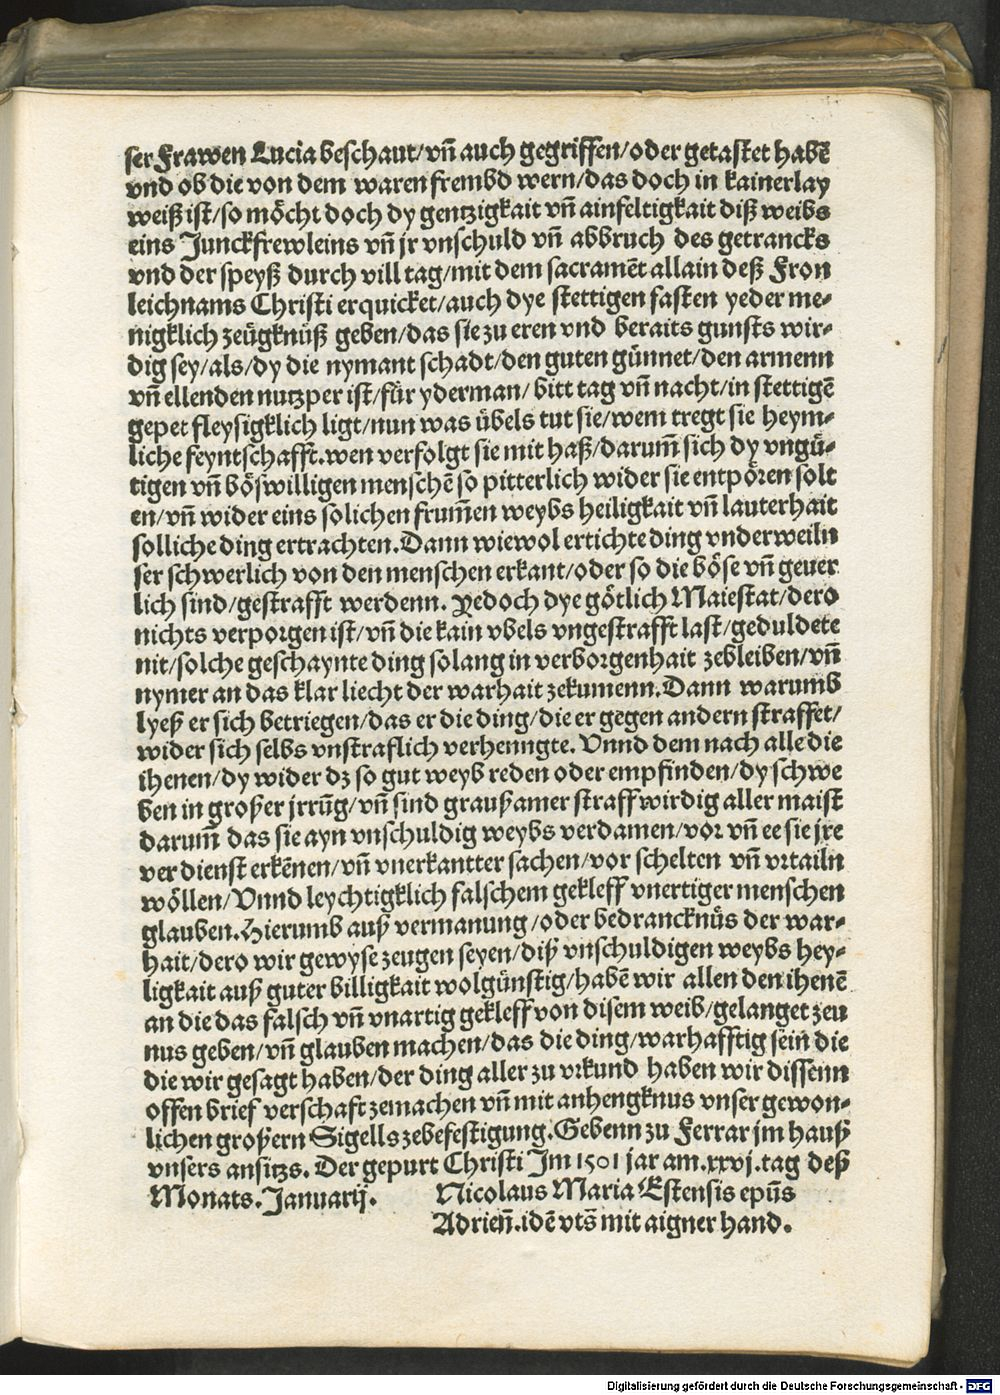 ser Frawen Lucia beschaut/vñ auch gegriffen/oder getastet habē
vnd ob die von dem waren frembd wern/das doch in kainerlay
weiß ist/so möcht doch dy gentzigkait vñ ainfeltigkait diß weibs
eins Junckfrewleins vñ jr vnschuld vñ abbruch des getrancks
vnd der speyß durch vill tag/mit dem sacramēt allain deß Fron
leichnams Christi erquicket/auch dye stettigen fasten yeder me-
nigklich zeügknüß geben/das sie zu eren vnd beraits gunsts wir-
dig sey/als/dy die nymant schadt/den guten günnet/den armenn
vñ ellenden nutzper ist/für yderman/ bitt tag vñ nacht/in stettigē
gepet fleysigklich ligt/nun was übels tut sie/wem tregt sie heym-
liche feyntschafft.wen verfolgt sie mit haß/darum̄ sich dy vngü-
tigen vñ böswilligen menschē so pitterlich wider sie entpören solt
en/vñ wider eins solichen frum̄en weybs heiligkait vñ lauterhait
solliche ding ertrachten.Dann wiewol ertichte ding vnderweiln
ser schwerlich von den menschen erkant/oder so die böse vñ geuer
lich sind/gestrafft werdenn. Yedoch dye götlich Maiestat/dero
nichts verporgen ist/vñ die kain vbels vngestrafft last/geduldete
nit/solche geschaynte ding solang in verborgenhait zebleiben/vñ
nymer an das klar liecht der warhait zekumenn.Dann warumb
lyeß er sich betriegen/das er die ding/die er gegen andern straffet/
wider sich selbs vnstraflich verhenngte. Vnnd dem nach alle die
ihenen/dy wider dz so gut weyb reden oder empfinden/dy schwe
ben in großer jrrūg/vñ sind graußamer straff wirdig aller maist
darum̄ das sie ayn vnschuldig weybs verdamen/vor vñ ee sie jre
verdienst erkēnen/vñ vnerkantter sachen/vor schelten vñ vrtailn
wöllen/Vnnd leychtigklich falschem gekleff vnertiger menschen
glauben.Hierumb auß vermanung/oder bedrancknüs der war-
hait/dero wir gewyse zeugen seyen/diß vnschuldigen weybs hey-
ligkait auß guter billigkait wolgünstig/habē wir allen den ihenē
an die das falsch vñ vnartig gekleff von disem weib/gelanget zeu
nus geben/vñ glauben machen/das die ding/warhafftig sein die
die wir gesagt haben/der ding aller zu vrkund haben wir dissenn
offen brief verschaft zemachen vñ mit anhengknus vnser gewon-
lichen großern Sigells zebefestigung.Gebenn zu Ferrar jm hauß
vnsers ansitzs. Der gepurt Christi Jm 1501 jar am.xxvj.tag deß
Monats.Januarij. Nicolaus Maria Estensis epūs
Adrieñ.idē vts̄ mit aigner hand.
Digitalisierung gefördert durch die Deutsche Forschungsgemeinschaft - DFG